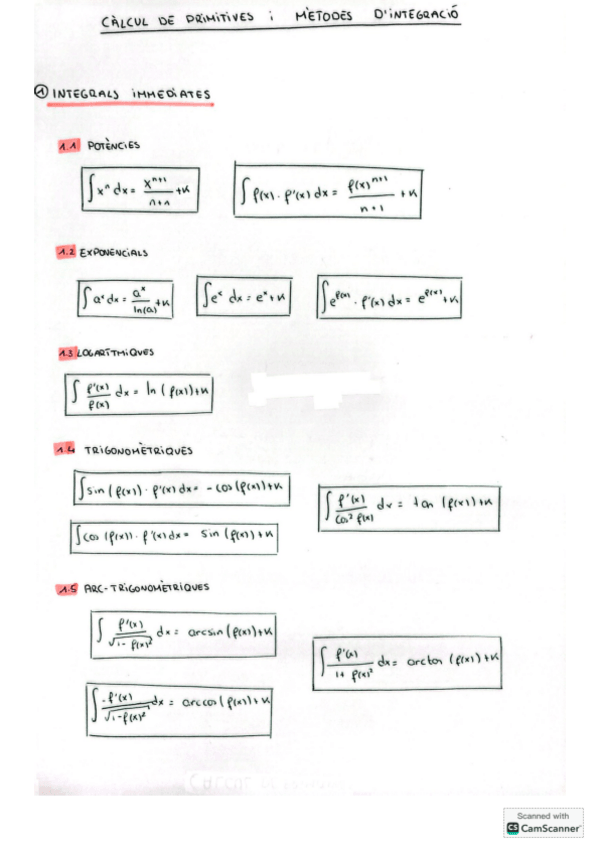 CÀLCUL DE PRIMITIVES i MÈTODES D'INTEGRACIÓ
① INTEGRALS IMMEDIATES
1.1 POTÈNCIES
∫xⁿ dx = xⁿ⁺¹/n+1 + K
∫f(x) · f'(x) dx = f(x)ⁿ⁺¹/n+1 + K
1.2 EXPONENCIALS
∫aˣ dx = aˣ/ln(a) + K
∫eˣ dx = eˣ + K
∫e^f(x) · f'(x) dx = e^f(x) + K
1.3 LOGARÍTMIQUES
∫ f'(x)/f(x) dx = ln (f(x)) + K
1.4 TRIGONOMÈTRIQUES
∫sin (f(x)) · f'(x) dx = - cos (f(x)) + K
∫ f'(x)/cos² f(x) dx = tan (f(x)) + K
∫cos (f(x)) · f'(x) dx = sin (f(x)) + K
1.5 ARC-TRIGONOMÈTRIQUES
∫ f'(x)/√1-f(x)² dx = arcsin (f(x)) + K
∫ f'(x)/1+ f(x)² dx = arctan (f(x)) + K
∫ -f'(x)/√1-f(x)² dx = arccos (f(x)) + K
Scanned with
CS CamScanner